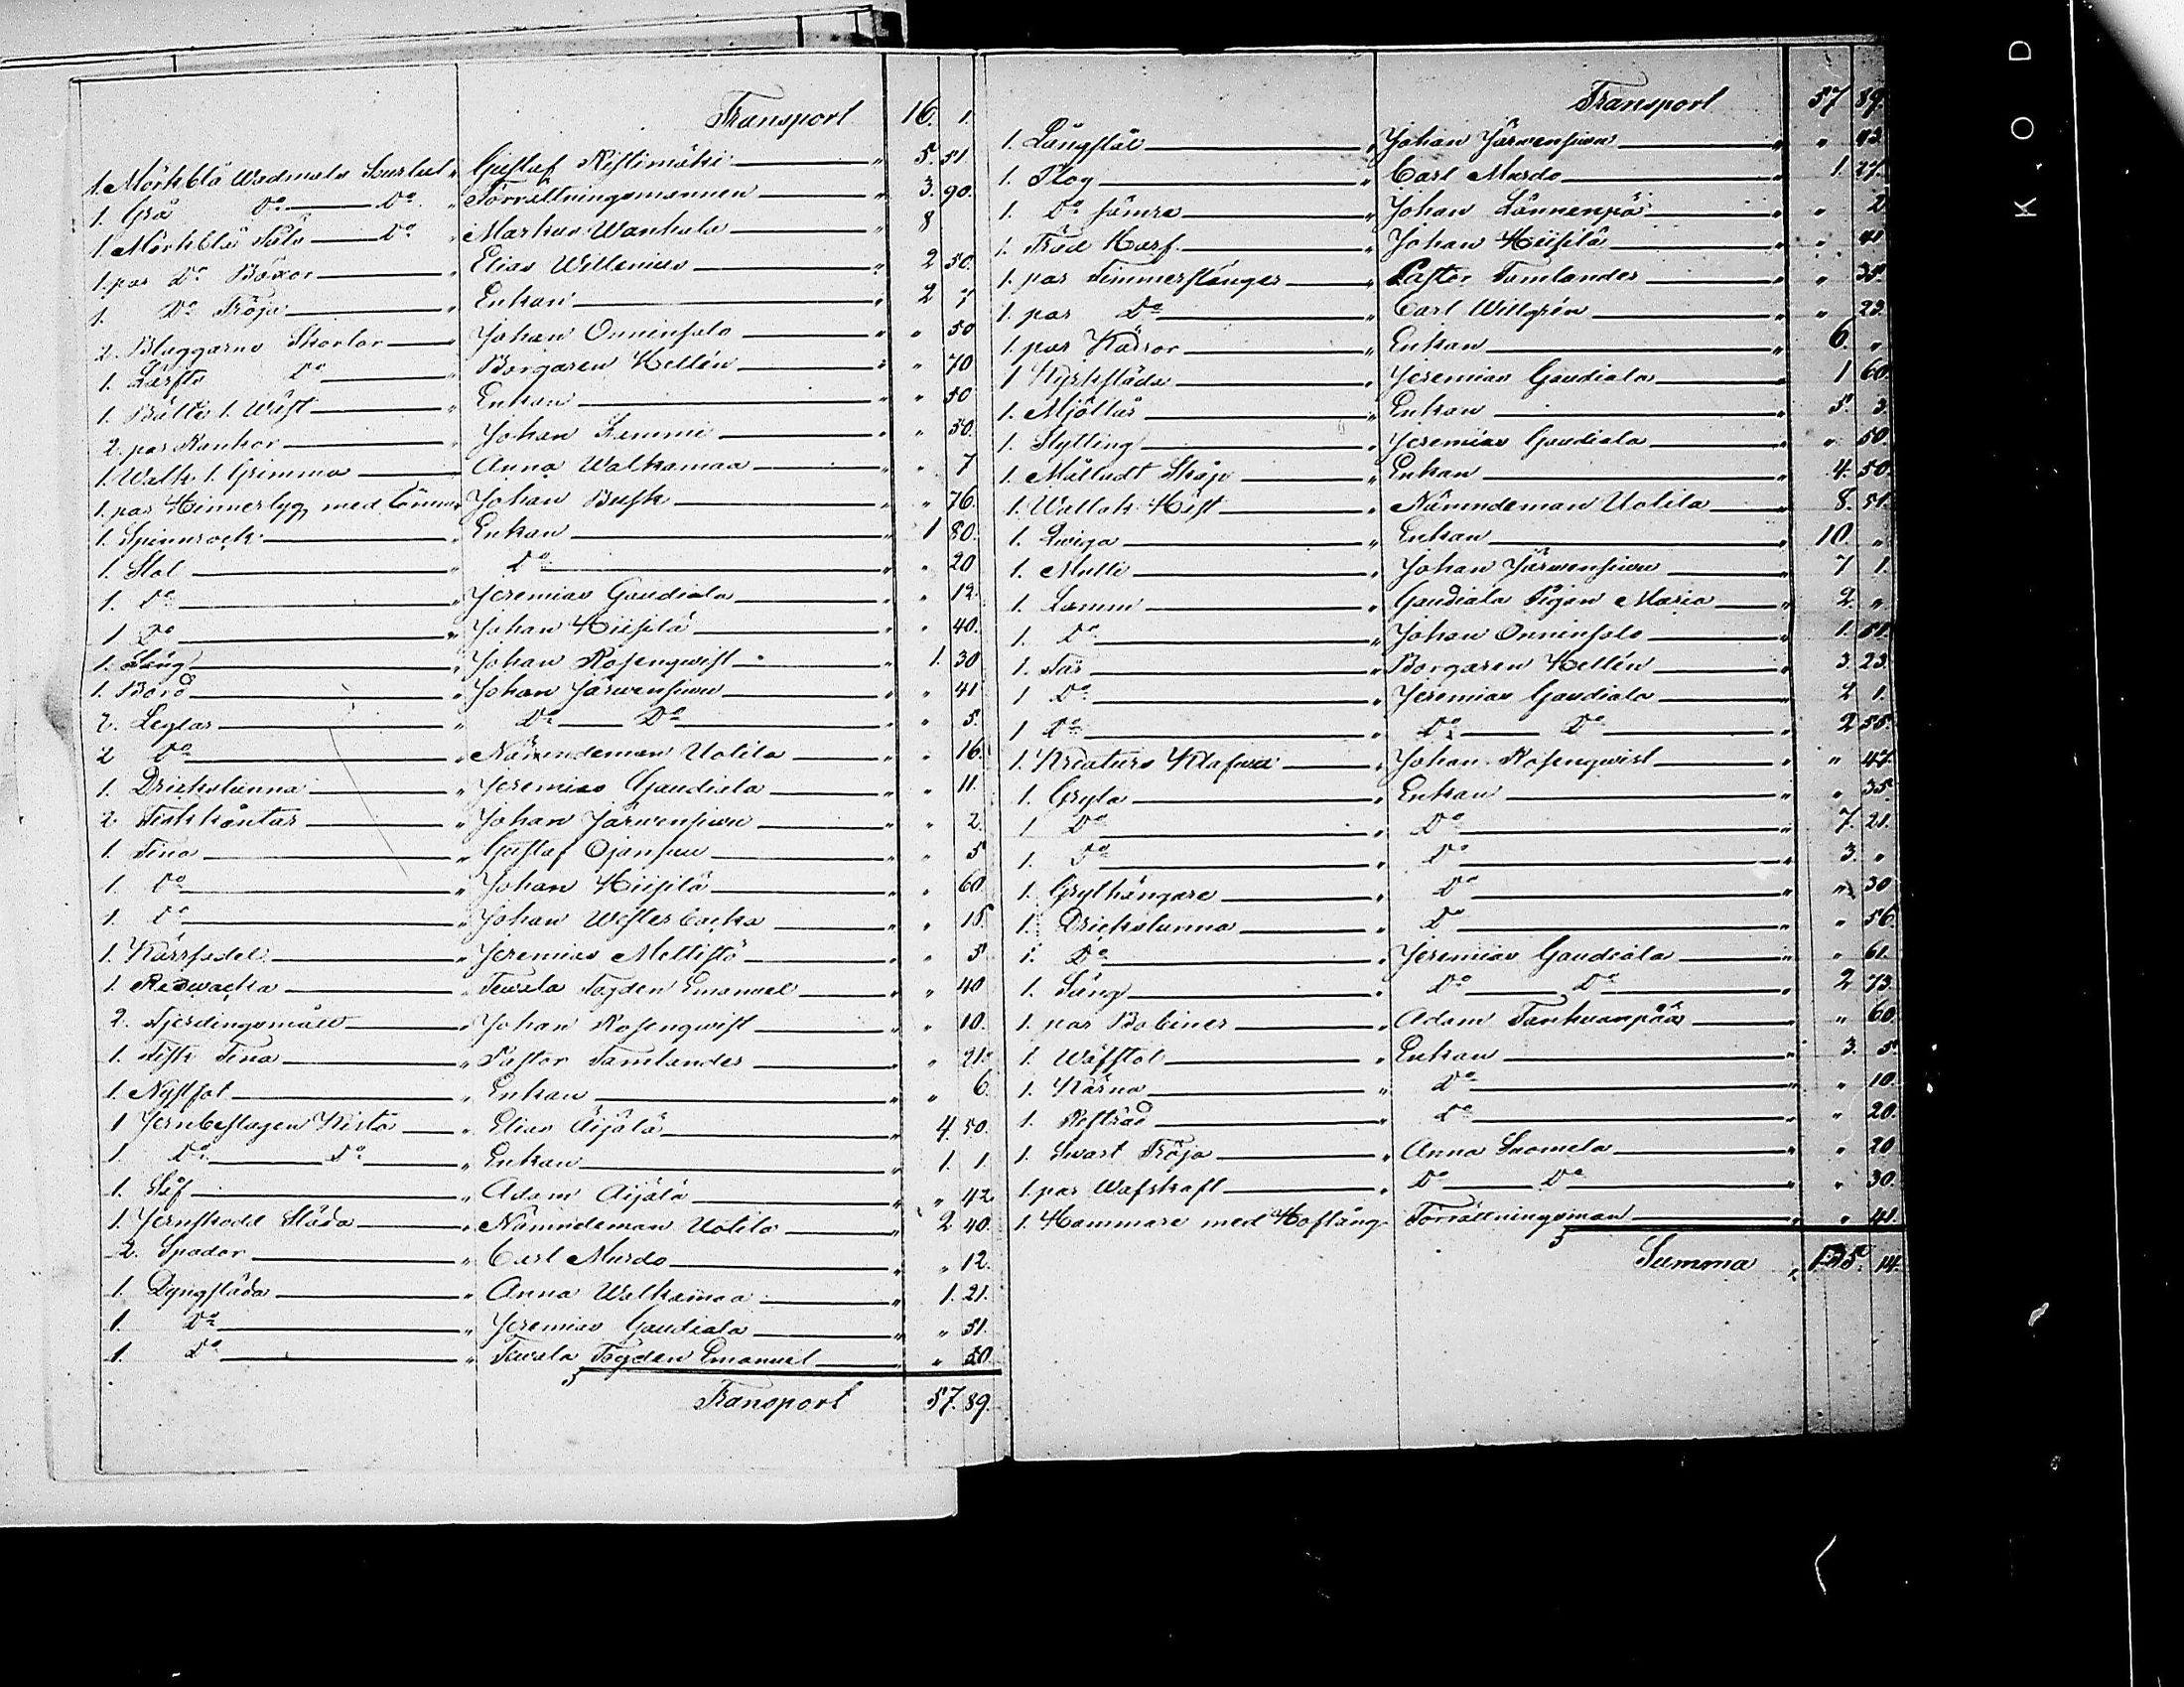 Transport 16. 1.
1. Mörkblå Wadmals Surtut " Gustaf Ristimäki " 5. 51
1. Grå Do Do " Förrättningsmannen " 3. 90.
1. Mörkblå Do " Markus Wankala " 8
1. par Do Böxor " Elias Willenius " 2 50.
1. Do Tröja " Enkan " 2 7
2. Blaggarns Skortor " Johan Onninsalo " " 50
1. Lärfts Do " Borgaren Hellén " " 70
1. Bälte 1. Wäst " Enkan " " 50
2. par Rankor " Johan Lammi " " 50.
1. Walk 1. Grimma " Anna Walkamaa " " 7
1. par Hinnertyg med Tömmar Johan Busk " " 76.
1. Spinnrock " Enkan " 1 80.
1. Stol " Do " " 20
1. Do " Jeremias Gaudiala " " 12.
1 Do " Johan Hiisilä " " 40.
1. Säng " Johan Rosenqwist " 1. 30
1. Bord " Johan Järwensiwu " " 41
2. Leglar " Do Do " " 5.
2 Do " Nämndeman Uotila " " 16.
1. Drickstunna " Jeremias Gaudiala " " 11.
2 Johan Järwensiwu " " 2.
1. Tina " Gustaf Ojansuu " " 5
1. Do " Johan Hiisilä " " 60.
1. Do " Johan Westerbacka " " 15.
1. Kärrsadel " Jeremias Mellistö " " 5
1. Redwacka " Tewala Fogden Emanuel " " 40
2. Fjerdingsmått " Johan Rosenqwist " " 10.
1. Fisk Tina " Pastor Tamlander " " 21.
1. Nystfot " Enkan " " 6.
1 Jernbeslagen Kista " Elias Äijälä " 4. 50.
1. Do Do " Enkan " 1. 1
1. Säf " Adam Äijälä " " 42
1. Jernskodd Släda " Nämndeman Uotila " 2 40.
2. Spador " Carl Murdo " " 12.
1. Dyngsläda " Anna Walkamaa " 1. 21.
1. Do " Jeremias Gaudiala " " 51.
1. Do " Tewala Fogden Emanuel " " 50
Transport 57. 89.
Transport 57 89.
1. Långstål " Johan Järwensiwu " " 43.
1. Plog " Carl Murdo " 1. 27.
1. Do sämre " Johan Lännenpä " " 2
1. Träd Harf " Johan Hiisilä " " 41
1. par Timmerstänger " Pastor Tamlander " " 35.
1. par Do " Carl Willgrén " " 23.
1. par Kärror " Enkan " 6. "
1 Kyrksläda " Jeremias Gaudiala " 1 60.
1. Mjöllår " Enkan " 5. 3.
1. Stylting " Jeremias Gaudiala " " 50.
1. Målludt Skåp " Enkan " 4. 50.
1. Wallak Häst " Nämndeman Uotila " 8. 51.
1. Qwiga " Enkan " 10. "
1. Mulli " Johan Järwensiwu " 7 1.
1. Lamm " Gaudiala Pigan Maria " 2. "
1. Do " Johan Onninsalo " 1. 51.
1. Får " Borgaren Hellén " 3. 23.
1 Do " Jeremias Gaudiala " 2 1.
1 Do " Do Do " 2 55.
1. Kreaturs " Johan Rosenqwist " " 47.
1. Gryta " Enkan " " 35.
1 Do " Do " 7. 21.
1. Do " Do " 3. "
1. Grythängare " Do " " 30
1. Drickstunna " Do " " 56
1. Do " Jeremias Gaudiala " " 61.
1. Säng " Do Do " 2 73.
1. par Bobiner " Adam Tankuanpää " " 60.
1. Wäfstol " Enkan " 3. 5.
1. Kärna " Do " " 10.
1. Do " " 20.
1. Swart Tröja " Anna Suomela " " 20
1. par Wäfskaft " Do Do " " 30.
1. Hammare med Hoftång " Förrättningsman " " 41.
Summa " 135. 14.
KOD